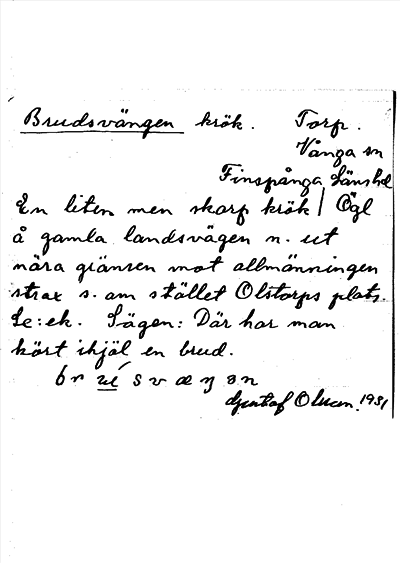 Brudsvängen krök. Torp.
Vånga sn
Finspånga Länshd
En liten men skarp krök | Ögl
å gamla landsvägen n. ut
nära gränsen mot allmänningen
strax s. om stället Olstorps plats.
Le: ek. Sägen: Där har man
kört ihjäl en brud.
br s v æ ŋ ə n
Gustaf Olsson. 1931